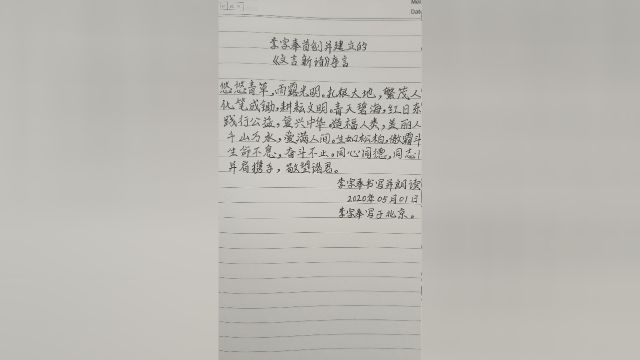 Dat
李宗奉首创并建立的
《文言新诗》序言
悠悠青草，雨露光明。扎根大地，繁茂人
化笔成锄，耕耘文明。青天碧海，红日东
践行公益，复兴中华。造福人类，美丽人
千山万水，爱满人间。生如松柏，傲霜斗
生命不息，奋斗不止。同心同德，同志
并肩携手，敬望诸君。
李宗奉书写并朗读
2020年05月01日
李宗奉写于北京。